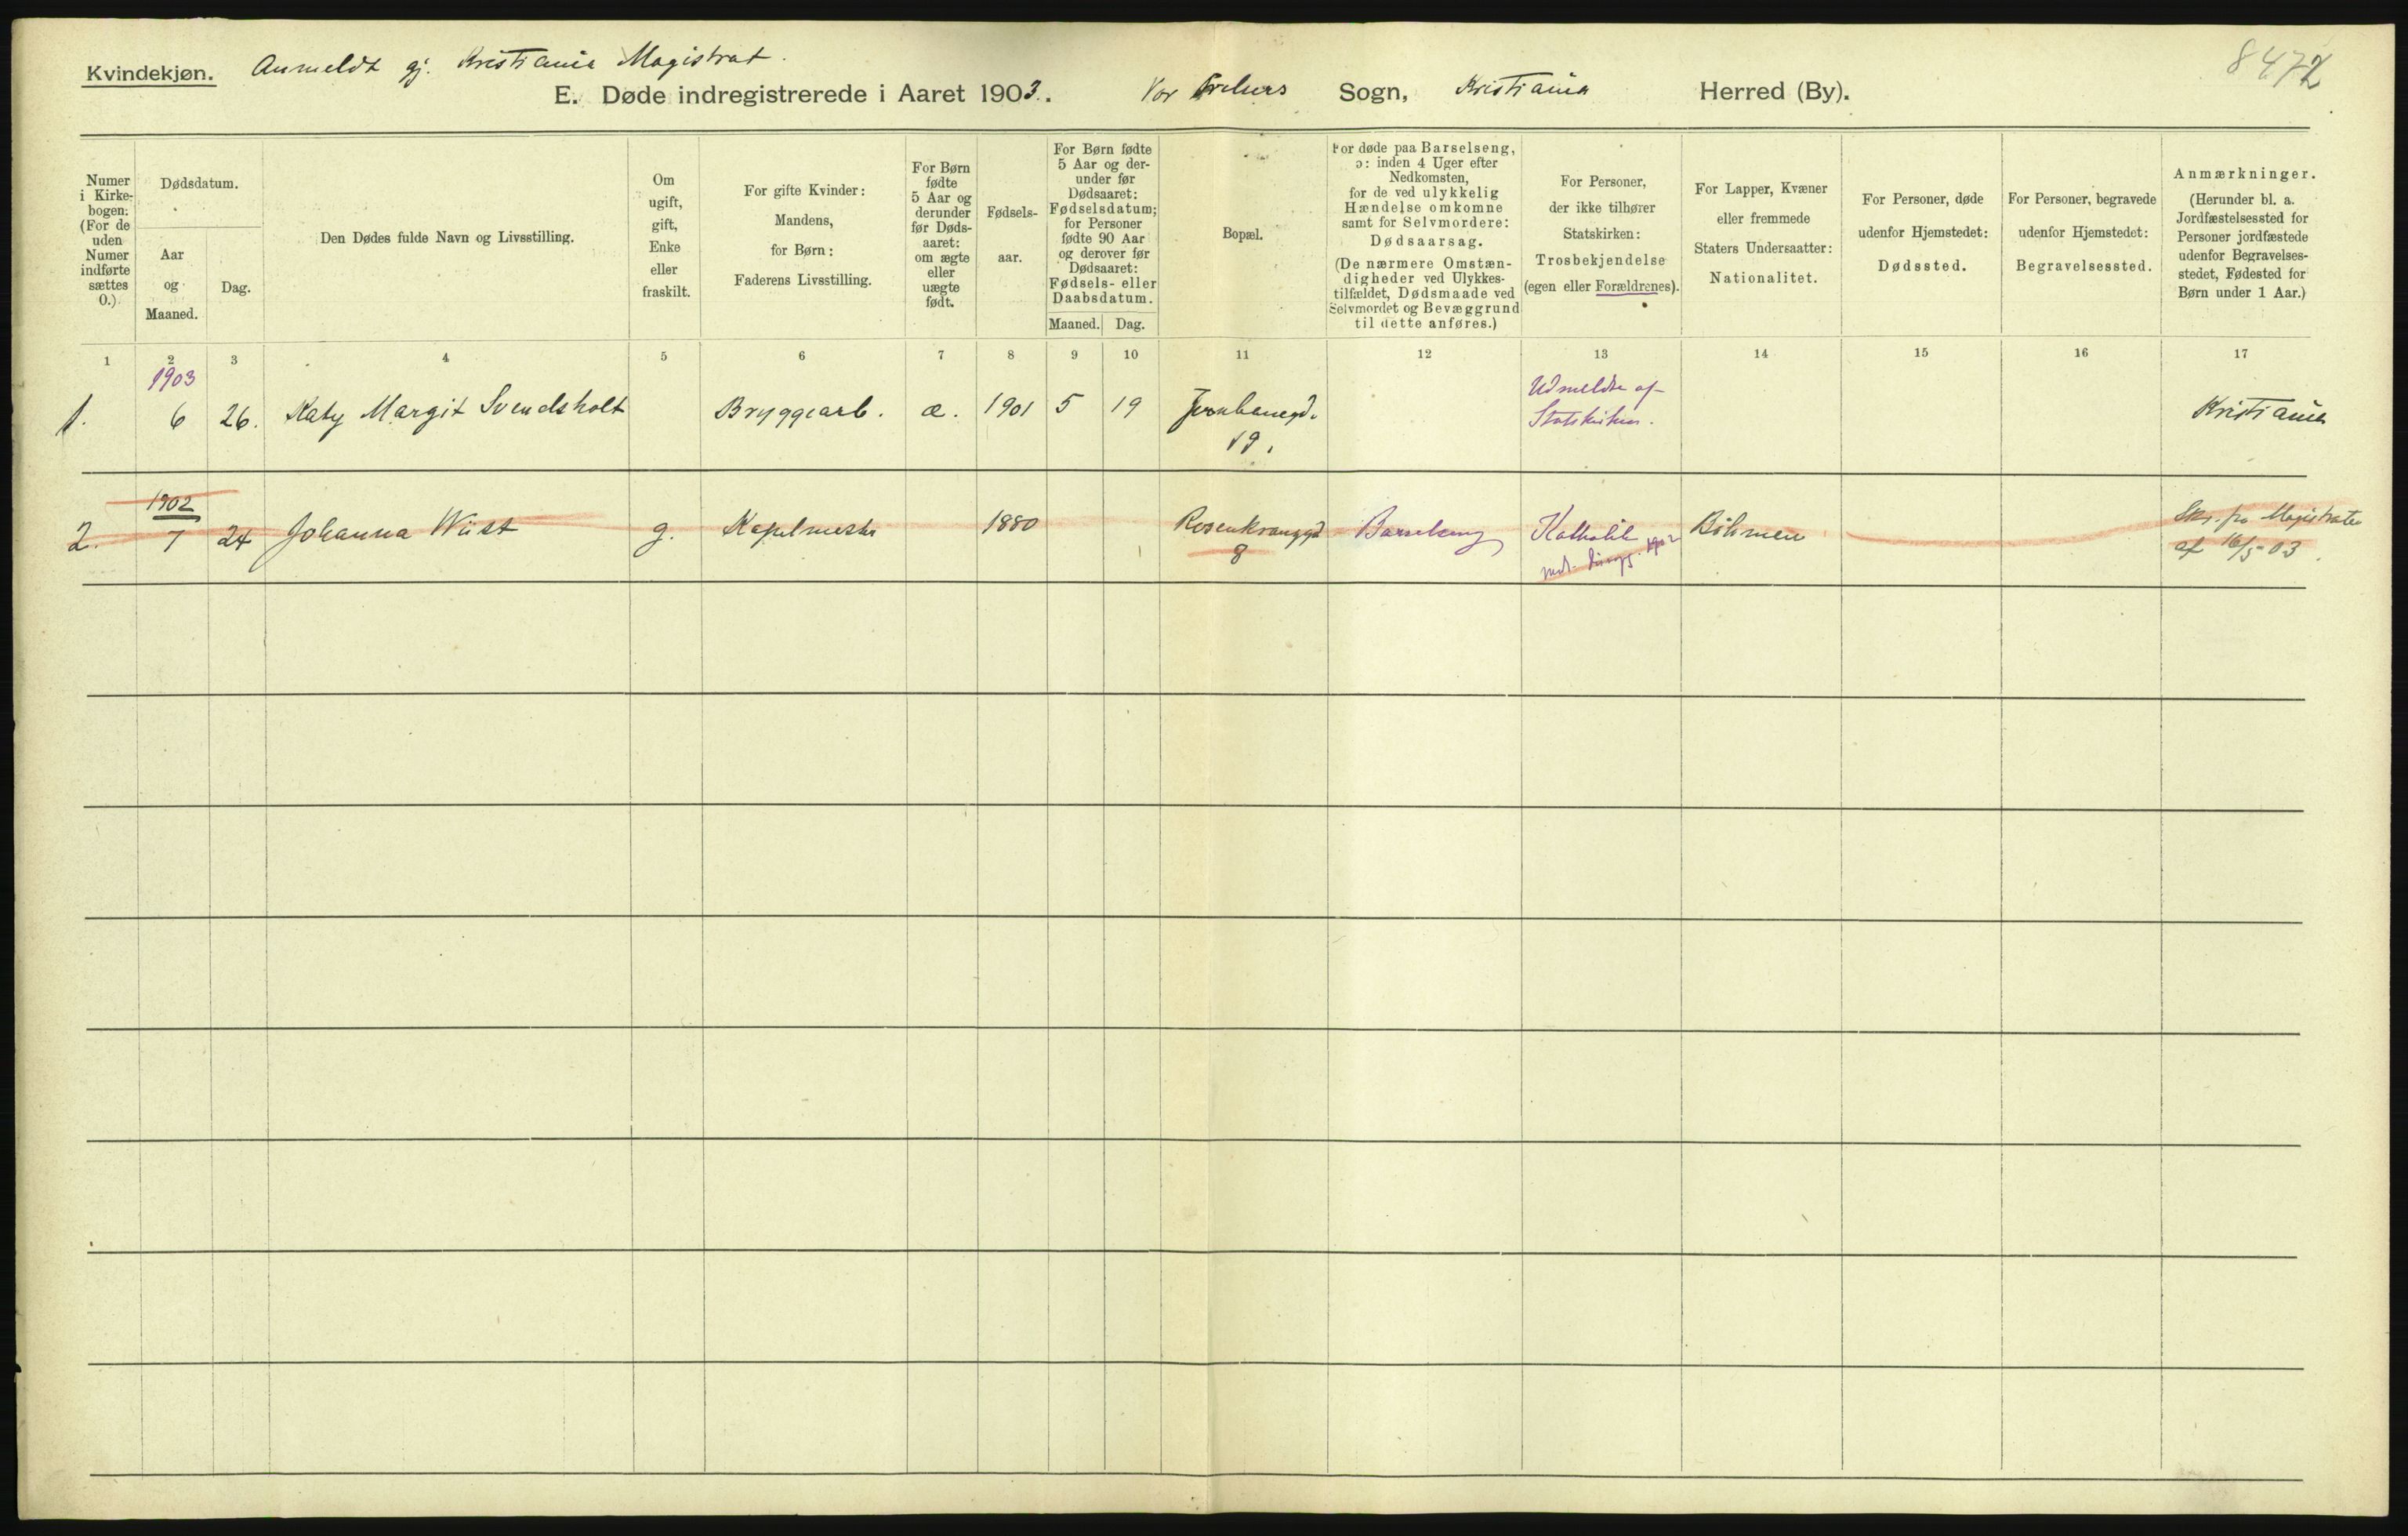 Kvindekjøn. Anmeldt gj. Kristiania Magistrat.
8472
E. Døde indregistrerede i Aaret 1903. Vor Frelsers Sogn, Kristiania Herred (By).
Numer
i Kirke-
bogen:
(For de
uden
Numer
indførte
sættes
0.)
Dødsdatum.
Aar
og
Maaned.
Dag.
Den Dødes fulde Navn og Livsstilling.
Om
ugift,
gift,
Enke
eller
fraskilt.
For gifte Kvinder:
Mandens,
for Børn:
Faderens Livsstilling.
For Børn
fødte
5 Aar og
derunder
før Døds-
aaret:
om ægte
eller
uægte
født.
Fødsels-
aar.
For Børn fødte
5 Aar og der-
under før
Dødsaaret:
Fødselsdatum;
for Personer
fødte 90 Aar
og derover før
Dødsaaret:
Fødsels- eller
Daabsdatum.
Maaned. Dag.
Bopæl.
For døde paa Barselseng,
ɔ: inden 4 Uger efter
Nedkomsten,
for de ved ulykkelig
Hændelse omkomne
samt for Selvmordere:
Dødsaarsag.
(De nærmere Omstæn-
digheder ved Ulykkes-
tilfældet, Dødsmaade ved
Selvmordet og Bevæggrund
til dette anføres.)
For Personer,
der ikke tilhører
Statskirken:
Trosbekjendelse
(egen eller Forældrenes).
For Lapper, Kvæner
eller fremmede
Staters Undersaatter:
Nationalitet.
For Personer, døde
udenfor Hjemstedet:
Dødssted.
For Personer, begravede
udenfor Hjemstedet:
Begravelsessted.
Anmærkninger.
(Herunder bl. a.
Jordfæstelsessted for
Personer jordfæstede
udenfor Begravelses-
stedet, Fødested for
Børn under 1 Aar.)
1 2 3 4 5 6 7 8 9 10 11 12 13 14 15 16 17
1903
1. 6 26. Katy Margit Svendsholt Bryggearb. æ. 1901 5 19 Jernbanegd. 19. Udmeldte af Statskirken. Kristiania
1902
2. 7 24 Johanna Wüst g. Kapelmester 1880 Rosenkrantzgd 8 Barselseng Katholik Böhmen Skr. fra Magistraten
1902
af 16/5-03.